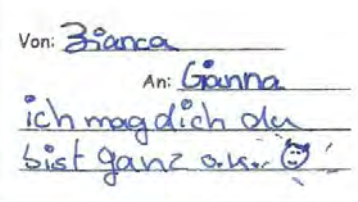 Von: Bianca
An: Gianna
ich mag dich du
bist ganz o.k.